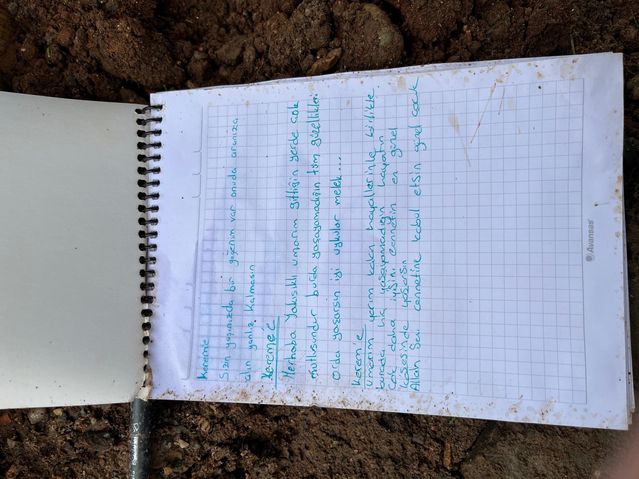 Kerem'e
Sizin yaşınızda bir yiğenim var onuda aranıza
alın yanlız kalmasın
Kereme
Merhaba Yakışıklı umarım gittiğin yerde çok
mutlusundur burda yaşayamadığın tüm güzellikleri
orda yaşarsın iyi uykular melek...
Kerem'e
umarım yarım kalan hayallerinle birlikte
burada hiç yaşayamadığın hayatın
çok daha iyisini cennetin en güzel
köşesinde yaşarsın
Allah Seni cennetine kabul etsin güzel çocuk
Avansas